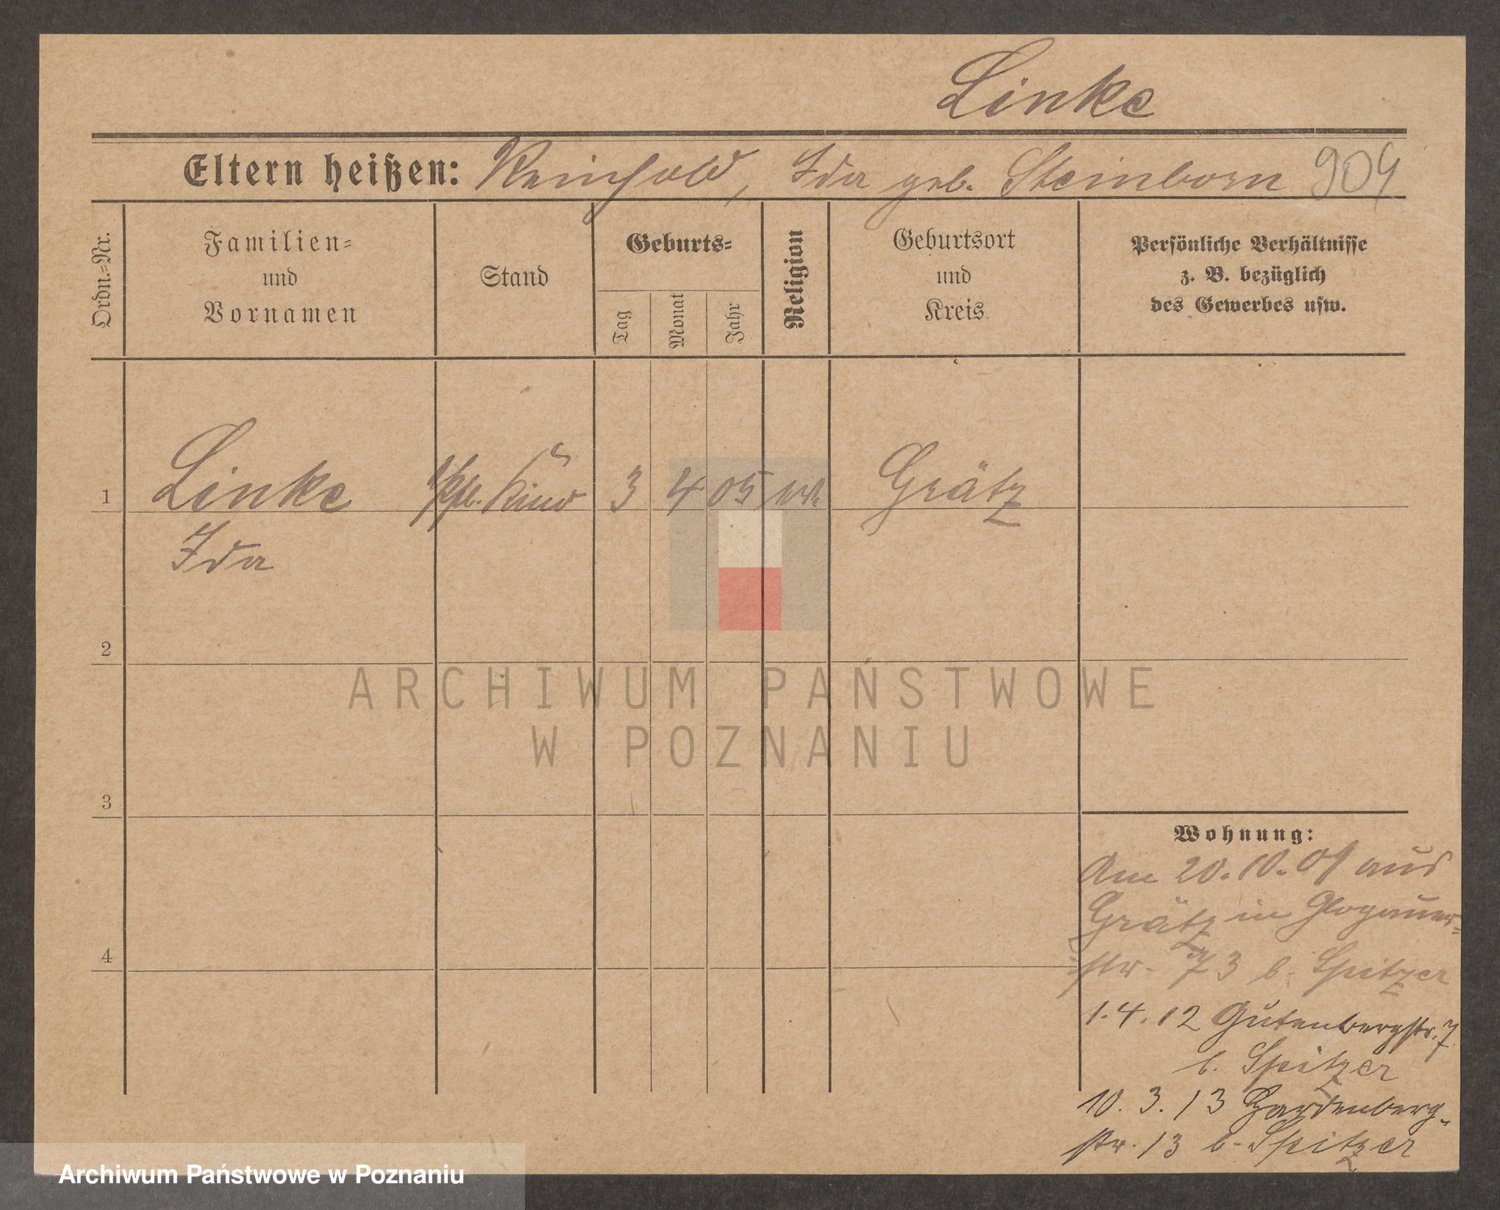 Linke
Eltern heißen: Reinhold, Ida geb. Steinborn 904
Ordn.=Nr.
Familien=
und
Vornamen
Stand
Geburts=
Tag
Monat
Jahr
Religion
Geburtsort
und
Kreis
Persönliche Verhältnisse
z. B. bezüglich
des Gewerbes usw.
1 Linke Kind 3 4 05 Grätz
Ida
2
3
4
Wohnung:
Am 20.10. aus
Grätz in Glogauer=
str. 73 b. Spitzer
1.4.12 Gutenbergstr. 7
b. Spitzer
10.3.13 Hardenberg-
str. 13 b. Spitzer
ARCHIWUM PAŃSTWOWE
W POZNANIU
Archiwum Państwowe w Poznaniu